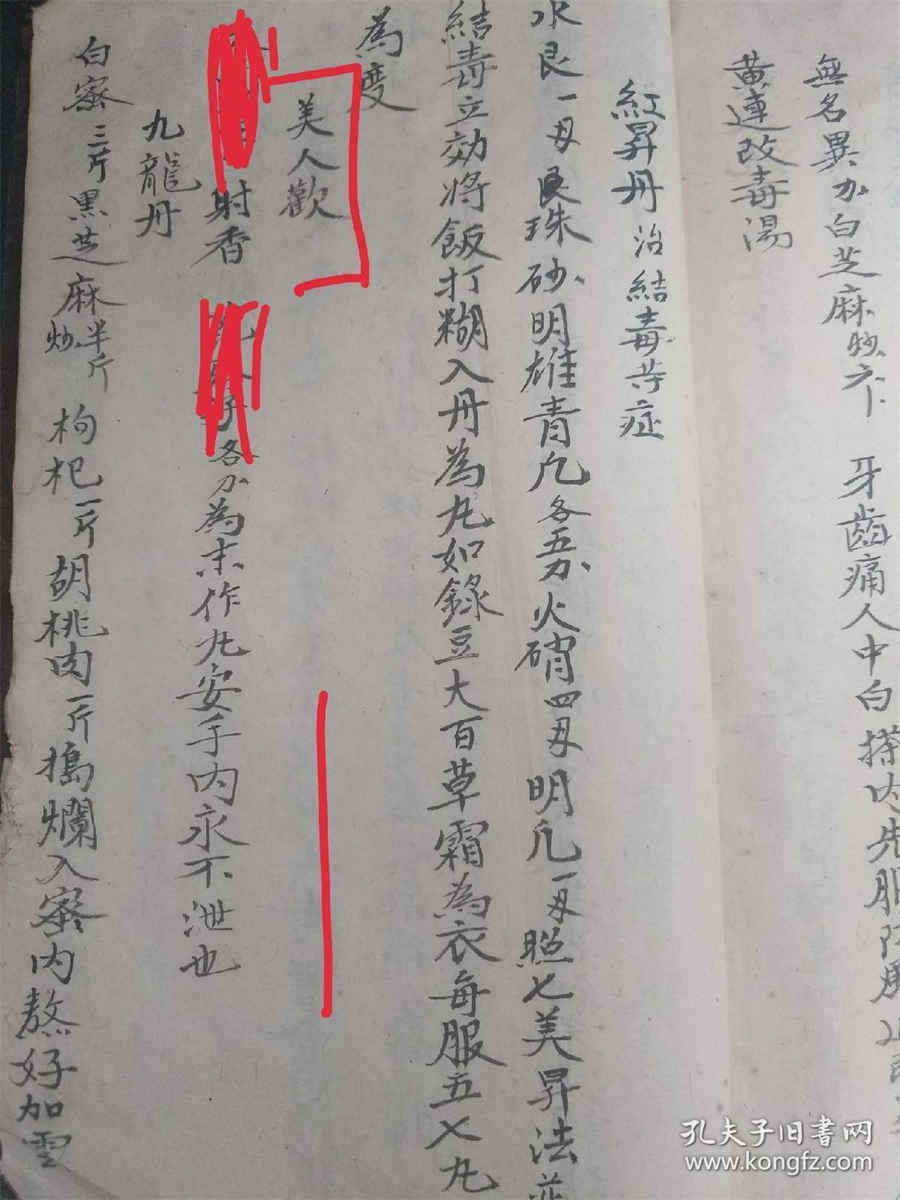 無名異分白芝麻炒六下 牙齒痛人中白搽內先服
黄連改毒湯
紅昇丹 治結毒苦症
水艮一両艮珠砂明雄青凢各五分火硝四両明凢一両照七美昇法
結毒立効將飯打糊入丹為丸如錄豆大百草霜為衣每服五七丸
為度
美人歡
射香 子各分為末作丸安手内永不泄也
九龍丹
白蜜三斤黒芝麻半斤炒枸杞一斤胡桃肉一斤搗爛入蜜内熬好加雲
孔夫子旧书网
www.kongfz.com